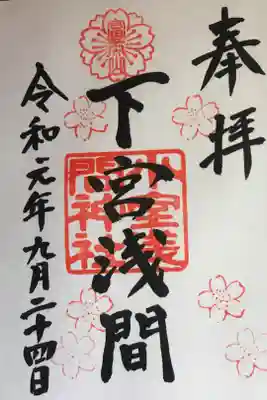 奉拝
下宮浅間
小室浅間神社
令和元年九月二十四日